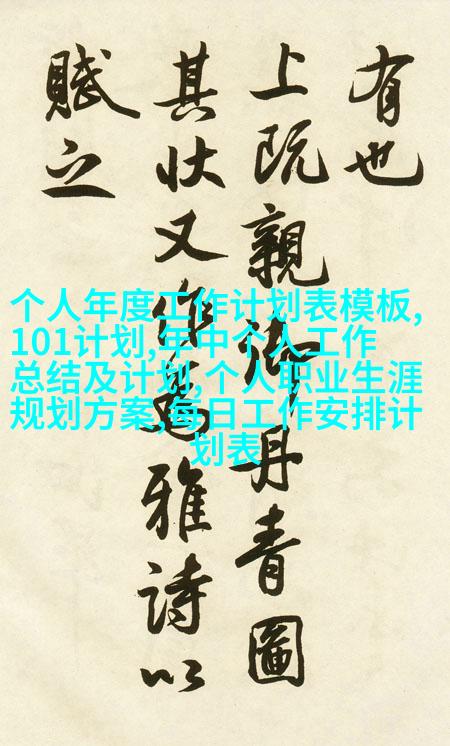 有也
上既親御丹青圖
其状又作為雅詩以
賦之
个人年度工作计划表模板,
101计划,年中个人工作
总结及计划,个人职业生涯
规划方案,每日工作安排计
划表